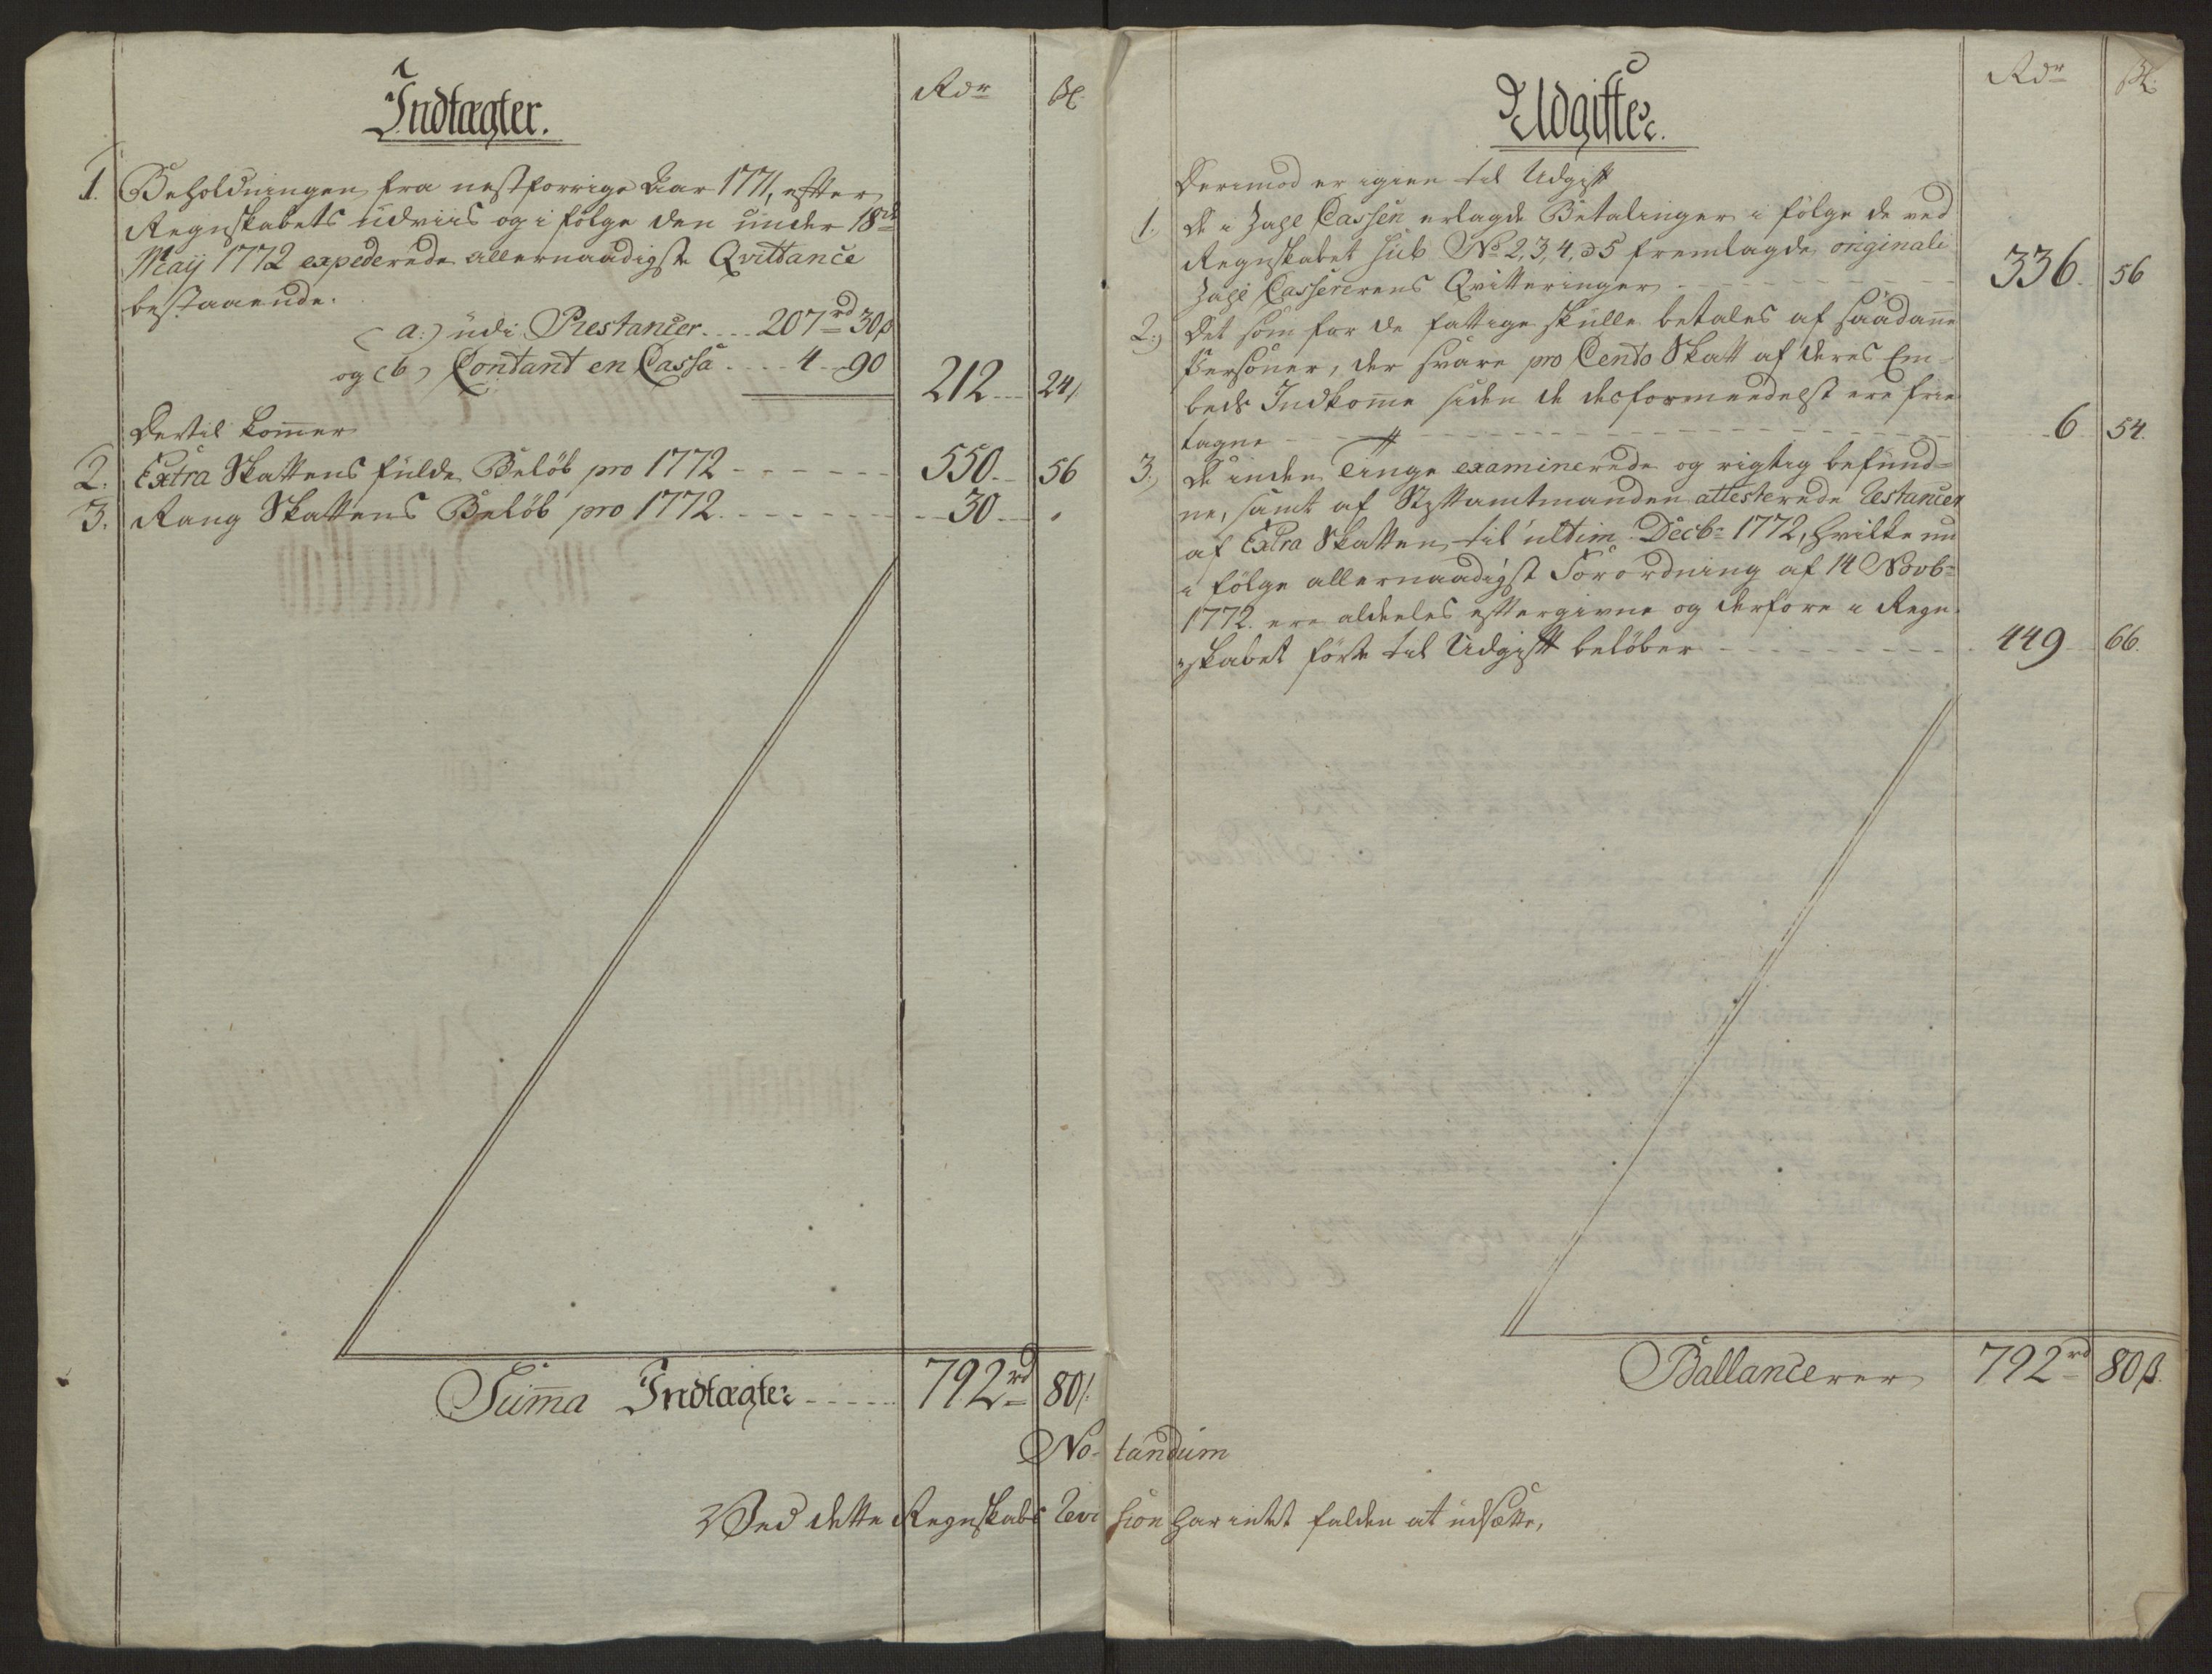 Indtægter.
Rdr
ßl.
1. Beholdningen fra nestforrige Aar 1771, effter
Regnskabets udviis og i følge den under 18de
Maij 1772 expederede allernaadigste Qvittance
bestaaende.
(a:) udi Restancer .... 207rd 30ß
og (b) Contant en Cassa .... 4 - 90
212 24
Dertil kommer
2. Extra Skattens fulde Beløb pro 1772 - - - - - - 550 56
3. Rang Skattens Beløb pro 1772 - - - - - - 30 -
Summa Indtægter ..... 792rd 80ß
Udgifter.
Rdr
ßl.
Derimod er igien til Udgift
1. De i Zahl Cassen erlagde Betalinger i følge de ved
Regnskabet sub No 2, 3, 4, & 5 fremlagde originale
Zahl Cassererens Qvitteringer - - - - 336. 56
2. Det som for de fattige skulle betales af saadanne
Persöner, der svare pro Cento Skatt af deres Em-
beds Indkomme siden de desformeedelst ere frie
tagne - - - - 6 54.
3. De inden Tinge examinerede og rigtig befund-
ne, samt af Stiftamtmanden attesterede Restancer
af Extra Skatten til ultim. Decbr 1772, hvilke nu
i følge allernaadigst Forordning af 14 Novbr
1772. ere aldeeles efftergivne og derfore i Regn-
skabet förte til Udgift belöber - - - - 449 66.
Ballancerer 792rd 80ß.
Notandum
Ved dette Regnskabs Revision har intet falden at udsætte,